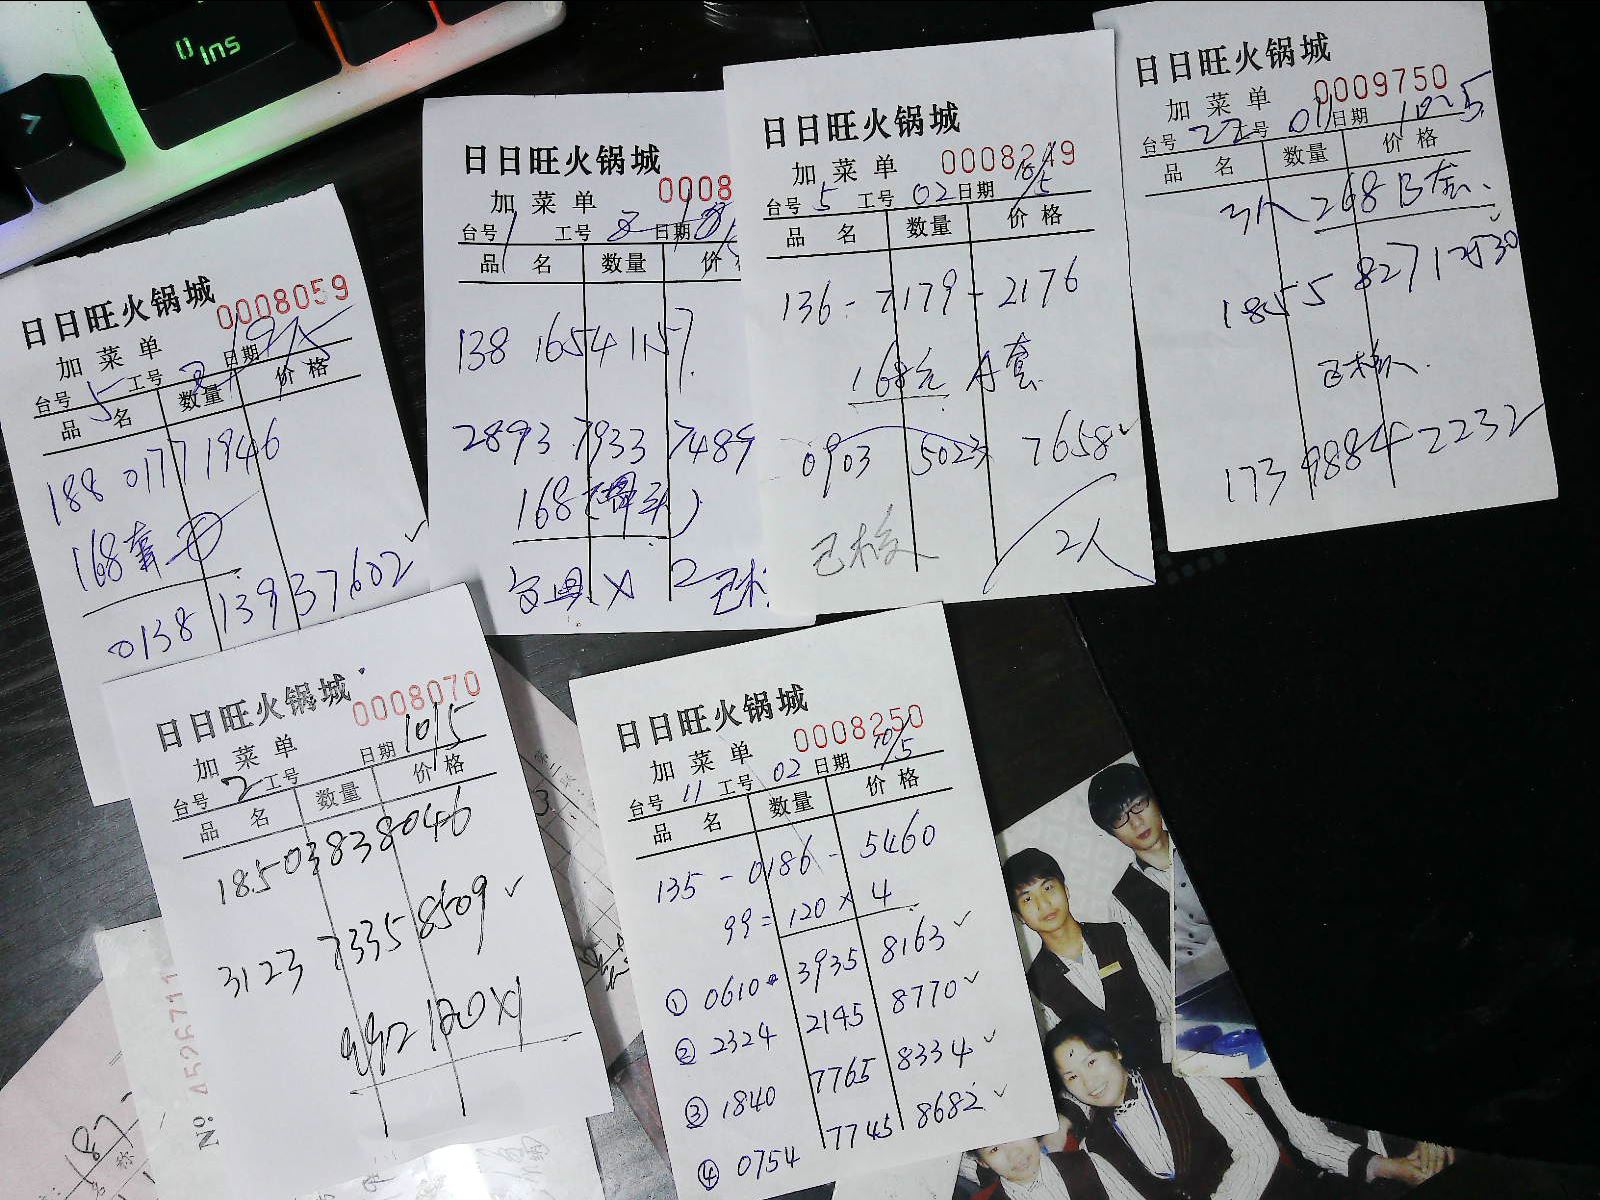 Ins
0
日日旺火锅城
0008059
加菜单
台号 5 工号 日期
品名 数量 价格
188 0177 1946
168套
0138 13937602
日日旺火锅城
0008
加菜单
台号 1 工号 日期
品名 数量 价
138 1654 1157
2893 7933 7489
168
X 2 已核
日日旺火锅城
0008249
加菜单
台号 5 工号 02 日期 10/5
品名 数量 价格
136-7179-2176
168元 A套
0903 5023 7658
已核
2人
日日旺火锅城
0009750
加菜单
台号 22 工号 01 日期
品名 数量 价格
3人 268 B套
1855 8271
已核
173 9884 2232
日日旺火锅城
0008070
加菜单
台号 2 工号 日期 10/5
品名 数量 价格
18503838046
3123 7335 8509
120X1
日日旺火锅城
0008250
加菜单
台号 11 工号 02 日期 10/5
品名 数量 价格
135-0186-5460
99=120×4
① 0610 3935 8163
② 2324 2145 8770
③ 1840 7765 8334
④ 0754 7745 8682
№ 4526711